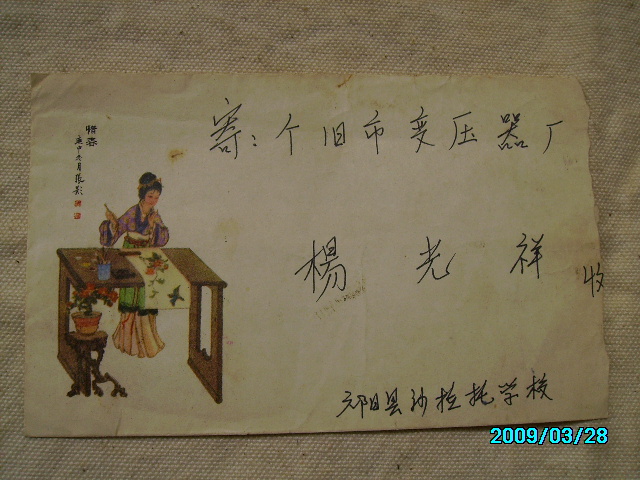 惜春
庚申冬月
寄：个旧市变压器厂
楊光祥 收
元阳县沙拉托学校
2009/03/28